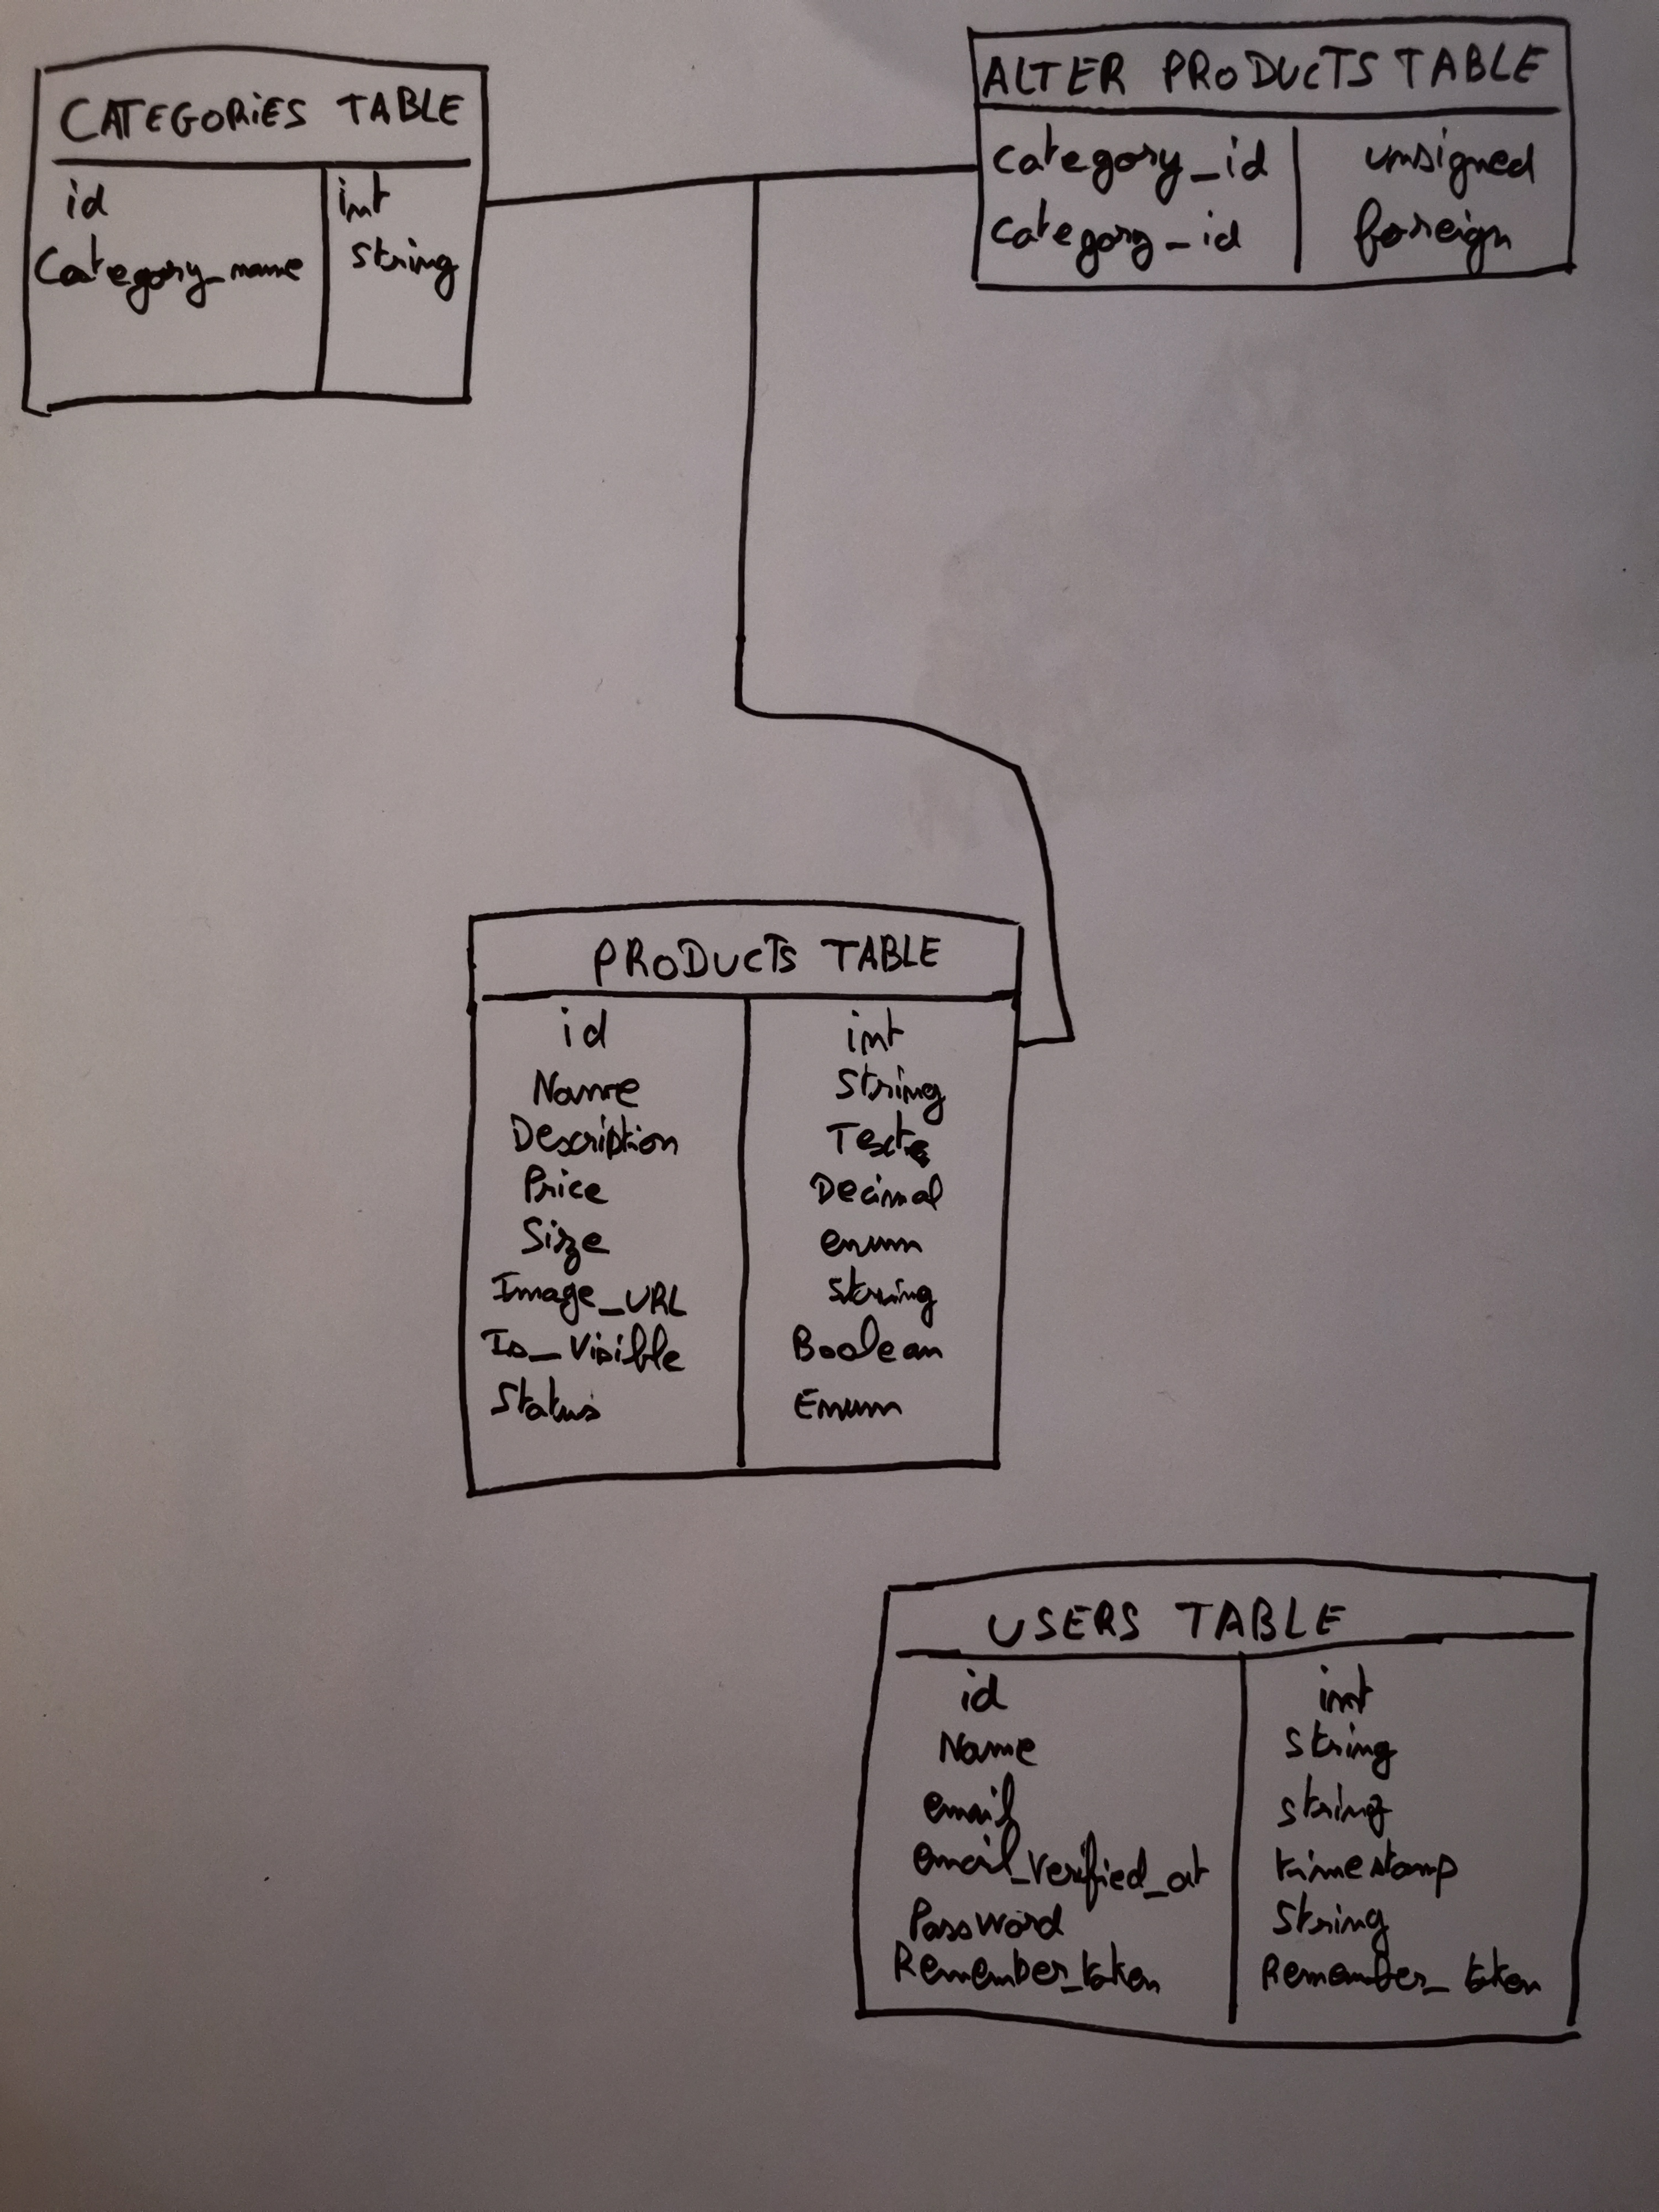 CATEGORIES TABLE
id int
Category_name string
ALTER PRODUCTS TABLE
category_id unsigned
category_id foreign
PRODUCTS TABLE
id int
Name String
Description Texte
Price Decimal
Size enum
Image_URL string
Is_Visible Boolean
Status Enum
USERS TABLE
id int
Name string
email string
email_verified_at timestamp
Password String
Remember_token Remember_token